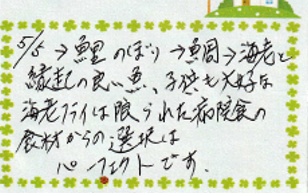 5/5→鯉のぼり→魚周→海老と
縁起の良い魚、子供も大好きな
海老フライは限られた病院食の
食材からの選択は
パーフェクトです。